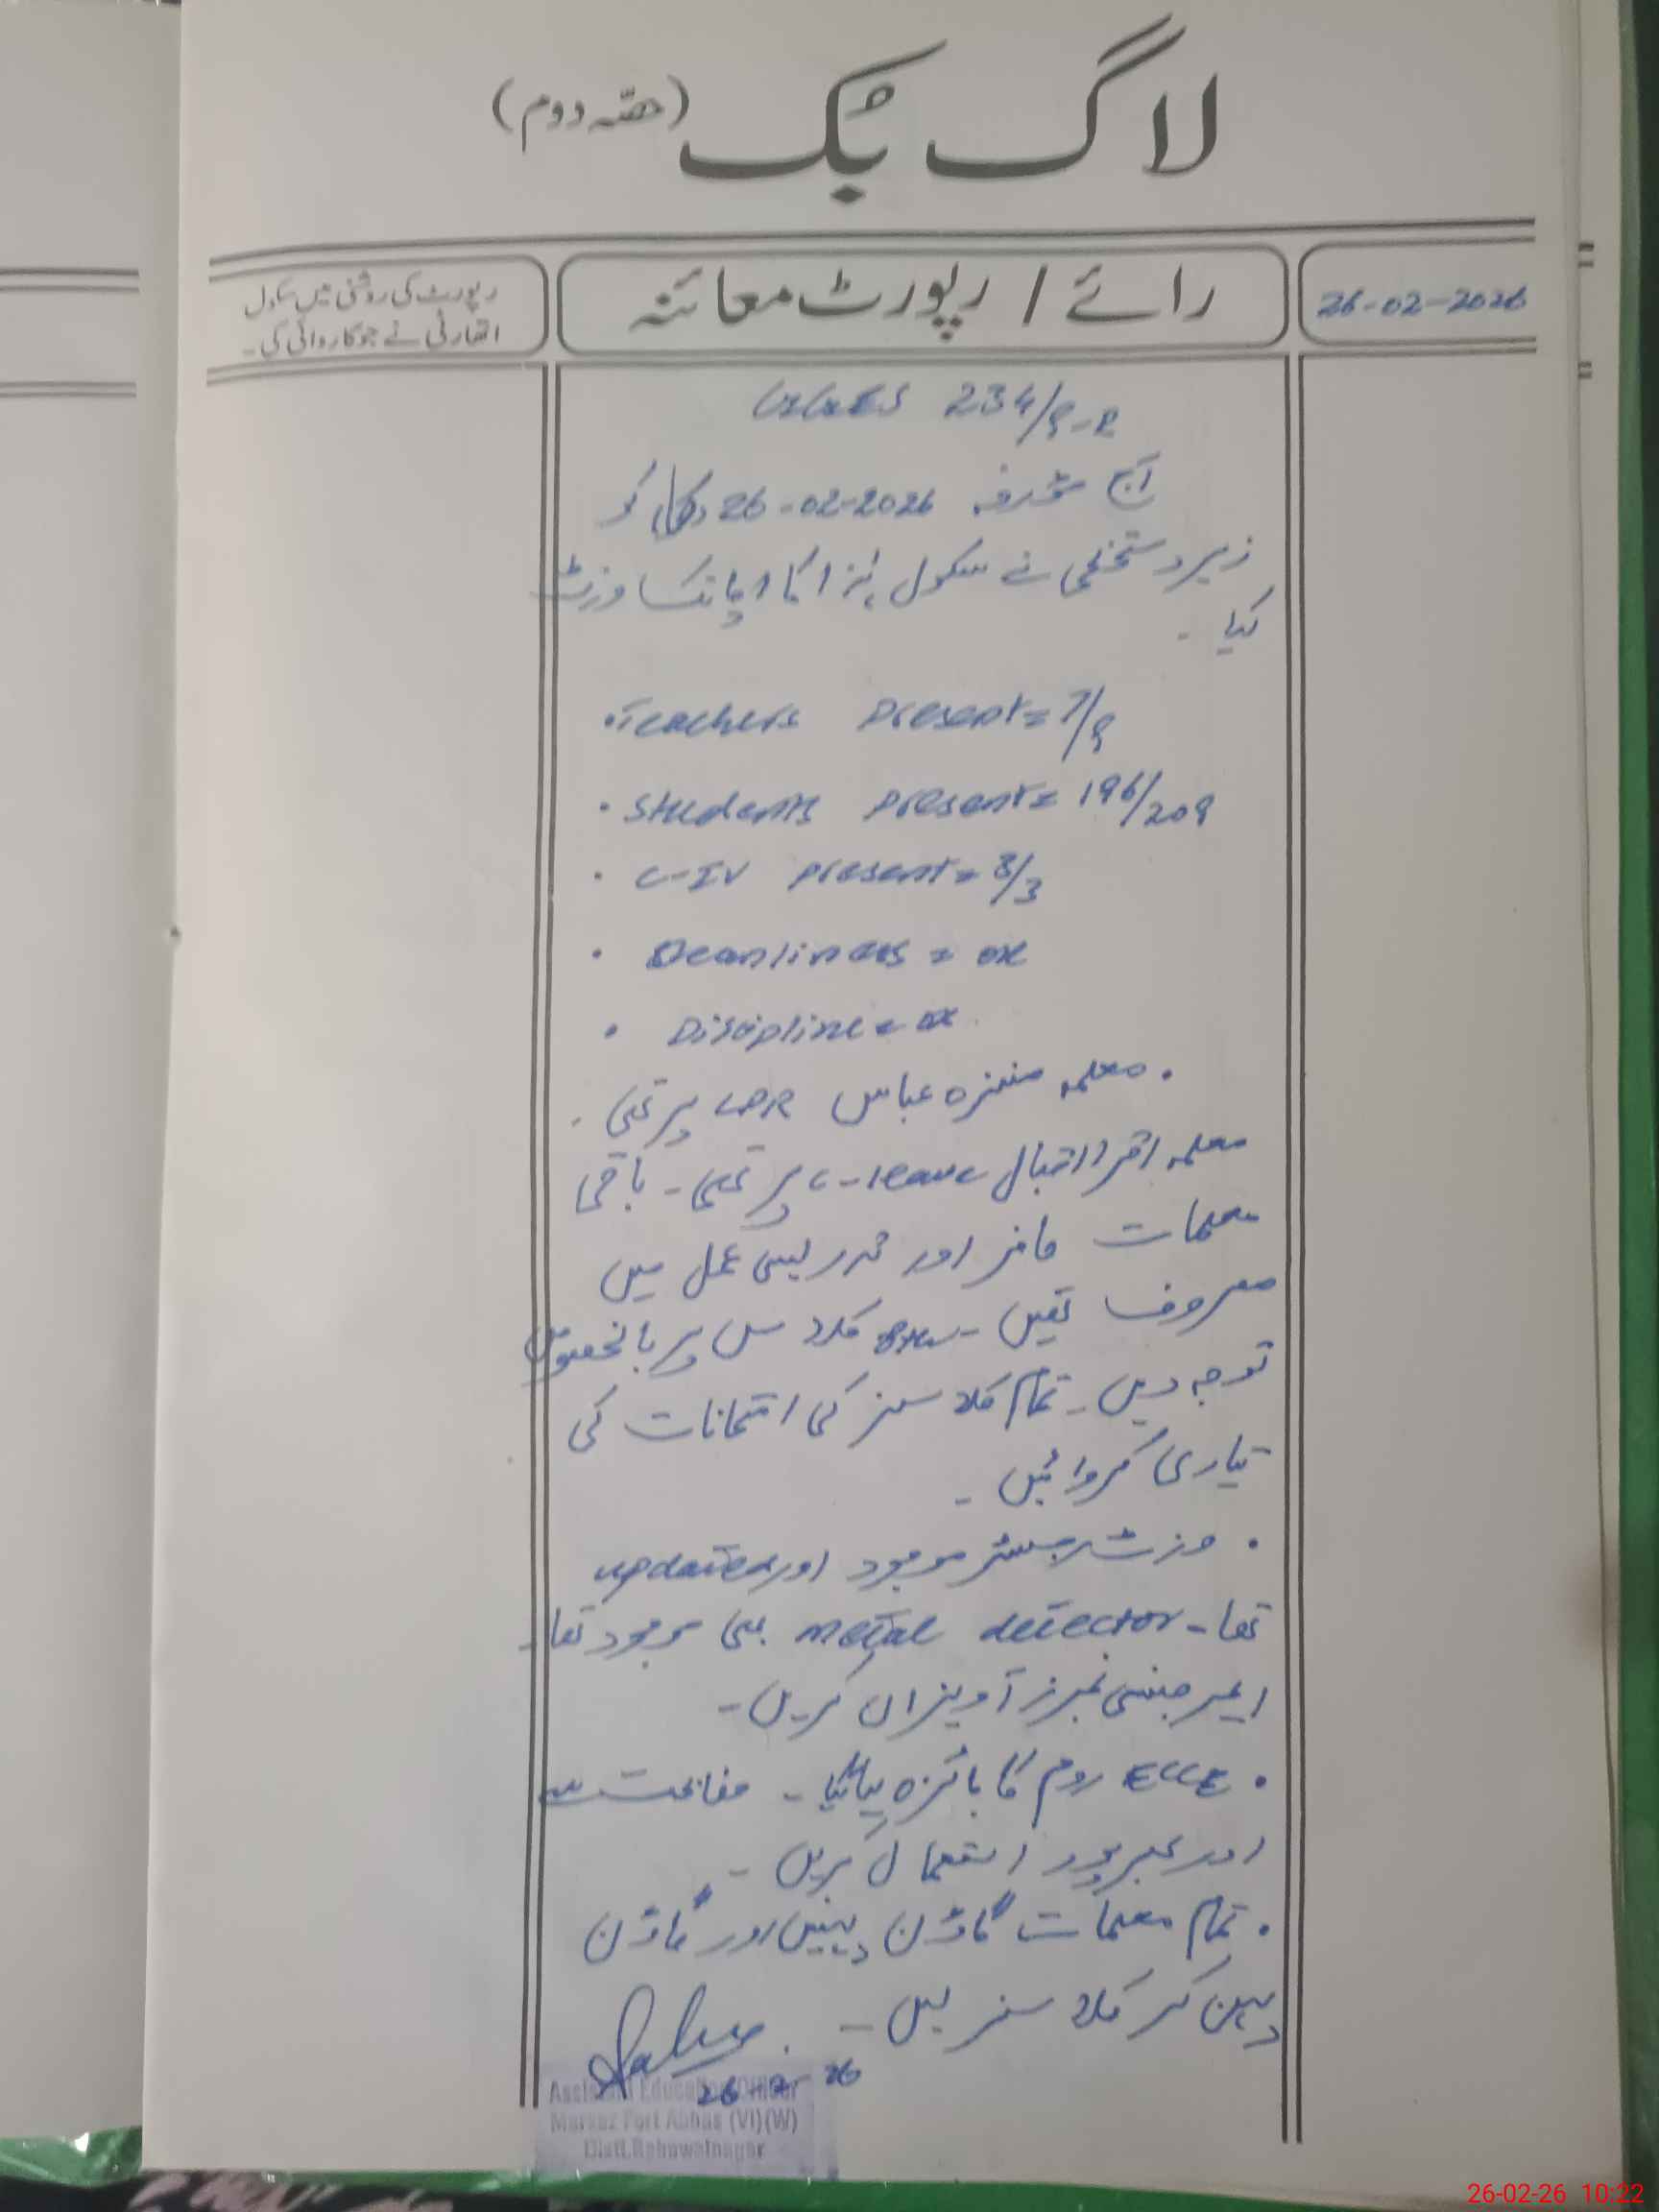 لاگ بُک (حصہ دوم)
26-02-2026
رائے / رپورٹ معائنہ
رپورٹ کی روشنی میں سکول
اتھارٹی نے جو کارروائی کی۔
GGES 234/9-R
آج مورخہ 26-02-2026 کو
زیر دستخطی نے سکول ہٰذا کا اچانک وزٹ
کیا -
• Teachers Present = 7/9
• Students Present = 196/209
• C-IV Present = 3/3
• Cleanliness = OK
• Discipline = OK
• معلمہ منزہ عباس LPR پر تھی -
معلمہ اقرا اقبال C-leave پر تھی - باقی
معلمات حاضر اور تدریسی عمل میں
مصروف تھیں - کلاس پر بالخصوص
توجہ دیں - تمام کلاسز کی امتحانات کی
تیاری کروائیں -
• وزٹ رجسٹر موجود اور updated
تھا - metal detector بھی موجود تھا -
ایمرجنسی نمبرز آویزاں کریں -
• ECCE روم کا جائزہ لیا گیا - سے
اور بھرپور استعمال کریں -
• تمام معلمات گاؤن پہنیں اور گاؤن
پہن کر کلاسز لیں -
26-2-26
Assistant Education Officer
Markaz Fort Abbas (VI)(W)
Distt.Bahawalnagar
26-02-26 10:22